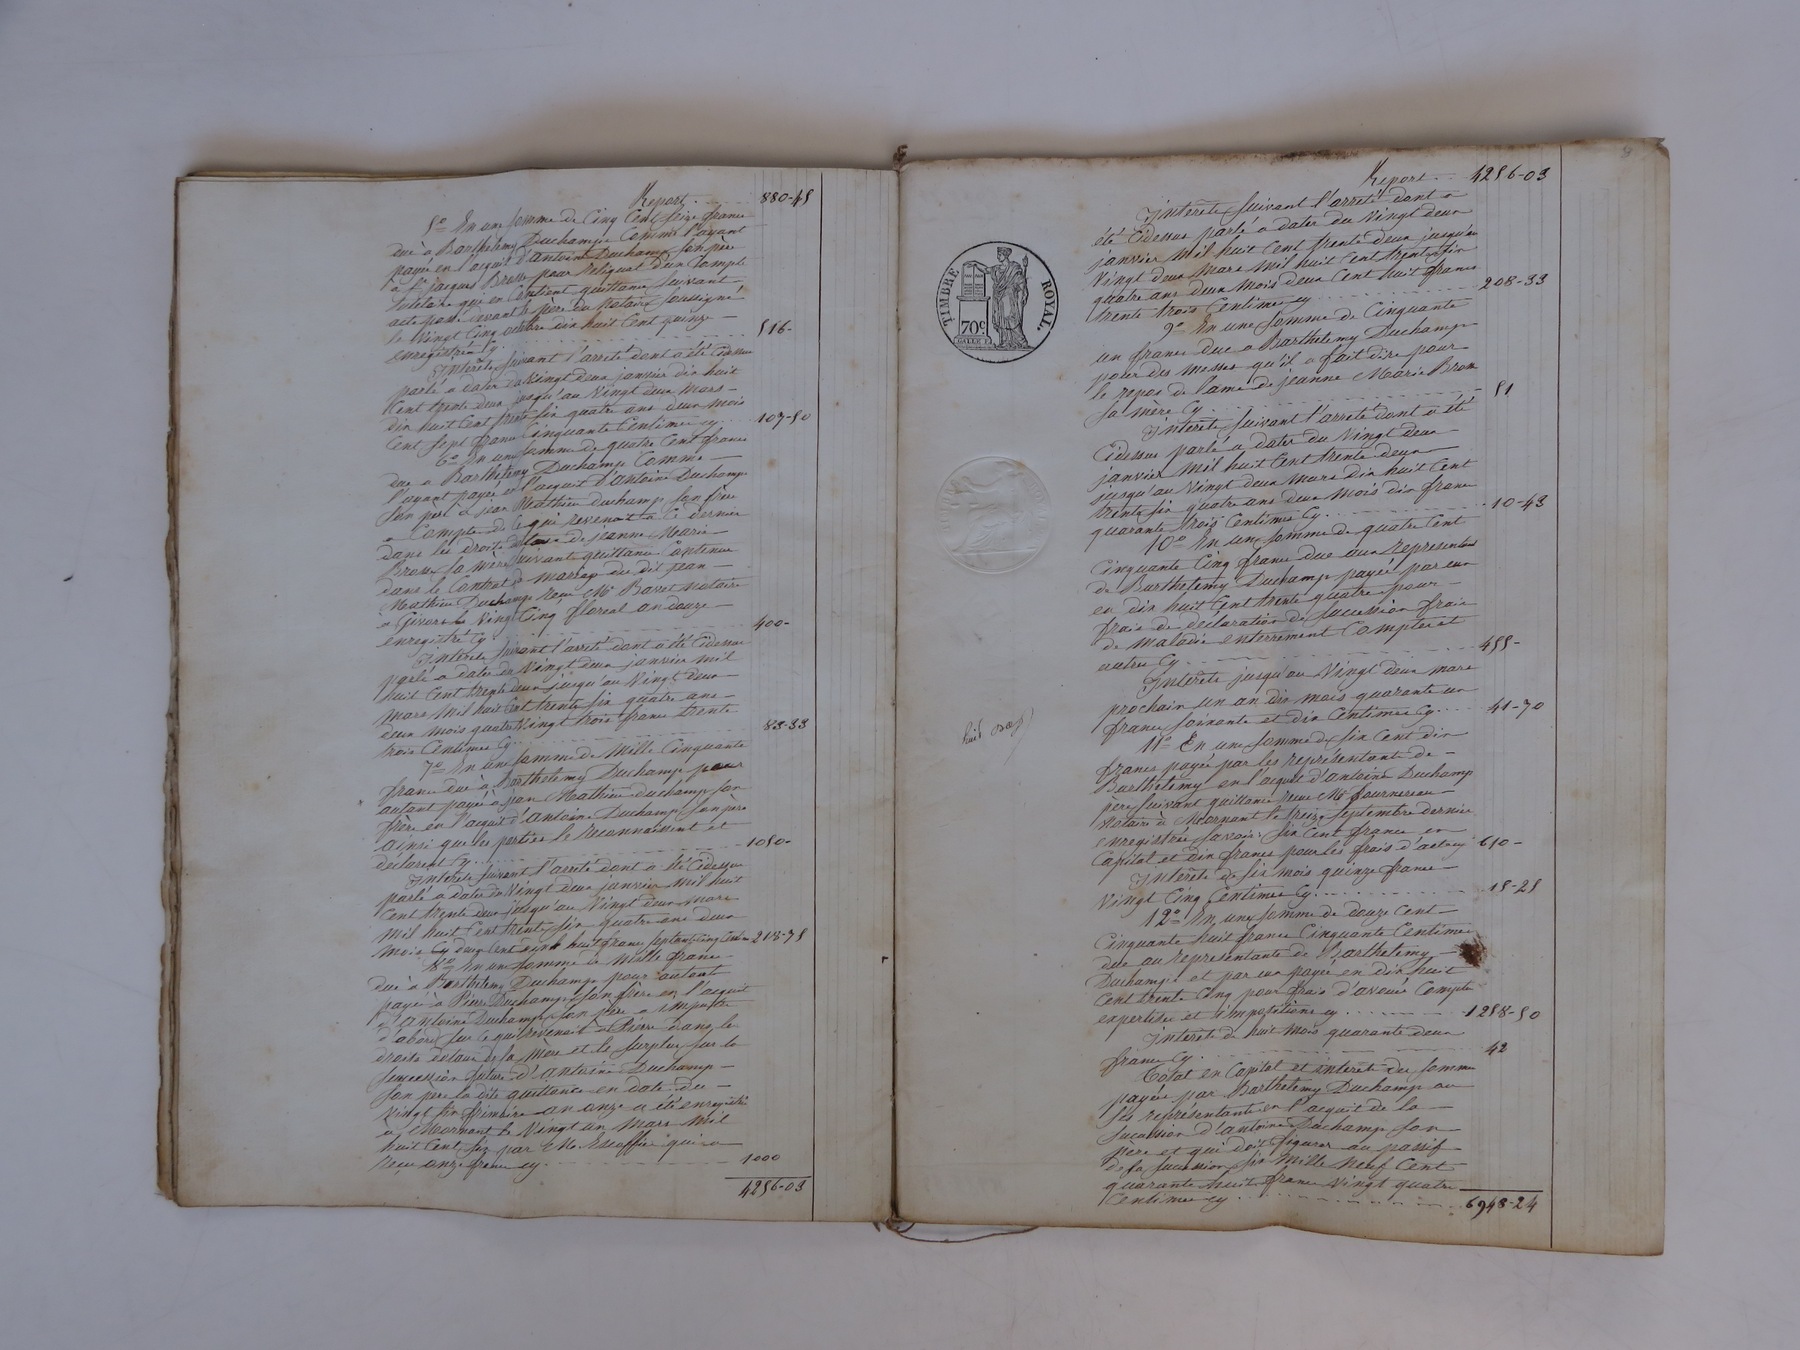 Report . . . 880-45
5º En une somme de Cinq Cent seize francs
due à Barthelemy Duchamp Comme l'ayant
payée en l'acquit d'Antoine Duchamp son père
à Sr jacques Brosse pour Reliquat d'un Compte
tutelaire que en Contient quittance suivant
acte passé devant le père du notaire soussigné
le Vingt Cinq octobre dix huit Cent quinze
enregistrée Cy . . . 516-
Intérêts suivant l'arrêté dont a été Cidessus
parlé à dater du Vingt deux janvier dix huit
Cent trente deux jusqu'au Vingt deux Mars
dix huit Cent trente six quatre ans deux mois
Cent sept francs Cinquante Centimes Cy . . 107-50
6º En une somme de quatre Cent francs
due à Barthelemy Duchamp Comme
l'ayant payée en l'acquit d'Antoine Duchamp
son père à jean Mathieu duchamp son frère
à Compte de Ce qui revenoit à Ce dernier
dans les droits de jeanne Marie
Brosse sa mère suivant quittance Contenue
dans le Contrat de mariage du dit jean
Mathieu Duchamp reçu Me Baret Notaire
à Givors le Vingt Cinq floréal an douze
enregistré Cy . . . 400-
Intérêts suivant l'arrêté dont a été Cidessus
parlé à dater du Vingt deux janvier mil
huit Cent trente deux jusqu'au Vingt deux
mars mil huit Cent trente six quatre ans
deux mois quatre Vingt trois francs trente
trois Centimes Cy . . . 83-33
7º En une somme de Mille Cinquante
francs due à Barthelemy Duchamp pour
autant payée à jean Mathieu duchamp son
frère en l'acquit d'Antoine Duchamp son père
ainsi que les parties le reconnaissent et
déclarent Cy . . . 1050-
Intérêts suivant l'arrêté dont a été Cidessus
parlé à dater du Vingt deux janvier Mil huit
Cent trente deux jusqu'au Vingt deux mars
mil huit Cent trente six quatre ans deux
mois Cy deux Cent huit francs septante Cinq Cent. 218-75
8º En une somme de Mille francs
due à Barthelemy Duchamp pour autant
payée à Pierre Duchamp son frère en l'acquit
d'Antoine Duchamp son père à imputer
d'abord sur Ce qui revenoit à Pierre dans les
droits de la Mère et le surplus sur la
succession future d'Antoine Duchamp
son père la dite quittance en date du
Vingt six frimaire an onze a été enregistrée
à Mornant le Vingt un Mars Mil
huit Cent six par Me Escoffier qui a
reçu onze francs cy . . . 1000
4256-03
TIMBRE ROYAL.
70c.
huit
Report . . . 4256-03
Intérêts suivant l'arrêté dont a
été Cidessus parlé à dater du Vingt deux
janvier mil huit Cent trente deux jusqu'au
Vingt deux Mars Mil huit Cent trente six
quatre ans deux mois deux Cent huit francs
trente trois Centimes cy . . . 208-33
9º En une somme de Cinquante
un francs due à Barthelemy Duchamp
pour des messes qu'il a fait dire pour
le repos de l'ame de jeanne Marie Brosse
sa mère Cy . . . 51
Intérêts suivant l'arrêté dont a été
Cidessus parlé à dater du Vingt deux
janvier Mil huit Cent trente deux
jusqu'au Vingt deux Mars dix huit Cent
trente six quatre ans deux Mois dix francs
quarante trois Centimes Cy . . . 10-43
10º En une somme de quatre Cent
Cinquante Cinq francs due aux représentans
de Barthelemy Duchamp payée par eux
en dix huit Cent trente quatre pour
frais de déclaration de succession frais
de Maladie enterrement Comptes et
autres Cy . . . 455-
Intérêts jusqu'au Vingt deux mars
prochain un an dix mois quarante un
francs soixante et dix Centimes Cy . . . 41-70
11º En une somme de six Cent dix
francs payée par les représentants de
Barthelemy en l'acquit d'antoine Duchamp
père suivant quittance reçue Me fournereau
Notaire à Mornant le treize septembre dernier
enregistrée savoir six Cent francs en
Capital et dix francs pour les frais d'acte cy 610-
Intérêts de six mois quinze francs
Vingt Cinq Centimes Cy . . . 15-25
12º En une somme de douze Cent
Cinquante huit francs Cinquante Centimes
due aux représentants de Barthelemy
Duchamp et par eux payée en dix huit
Cent trente Cinq pour frais d'avoué Compte
expertise et impositions cy . . . 1258-50
Intérêts de huit mois quarante deux
francs Cy . . . 42
Total en Capital et intérêts des sommes
payées par Barthelemy Duchamp ou
ses représentants en l'acquit de la
succession d'antoine Duchamp son
père et qui doit figurer au passif
de la succession six Mille Neuf Cent
quarante huit francs Vingt quatre
Centimes cy . . . 6948-24